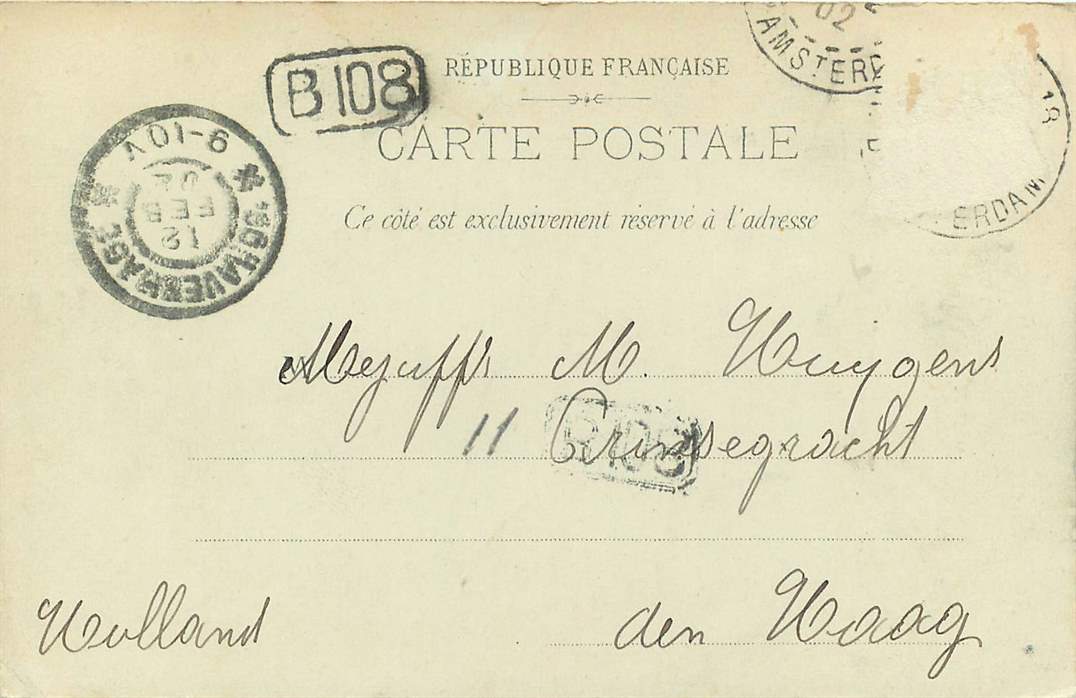 02
AMSTERD
B108
RÉPUBLIQUE FRANÇAISE
18
ERDAM
CARTE POSTALE
9-10V
12
FEB
02
'SGRAVENHAGE
Ce côté est exclusivement réservé à l'adresse
Mejuffr M. Huijgens
11 Prinsegracht
B108
Holland den Haag